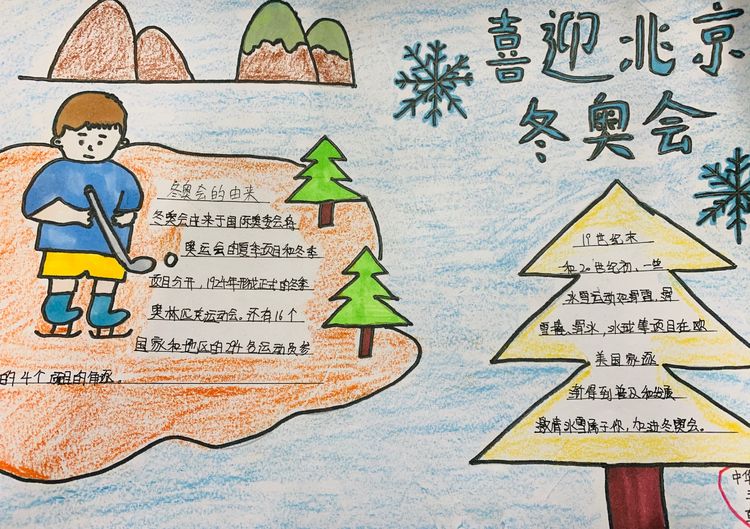 喜迎北京
冬奥会
冬奥会的由来
冬奥会由来于国际奥委会将
奥运会的夏季项目和冬季
项目分开,1924年形成正式的冬季
奥林匹克运动会。还有16个
国家和地区的294名运动员参
的4个项目的角逐。
19世纪末
和20世纪初,一些
冰雪运动如滑雪、滑
雪橇、滑冰、冰球等项目在欧
美国家逐
渐得到普及和发展
激情冰雪属于你,加油冬奥会。
中华